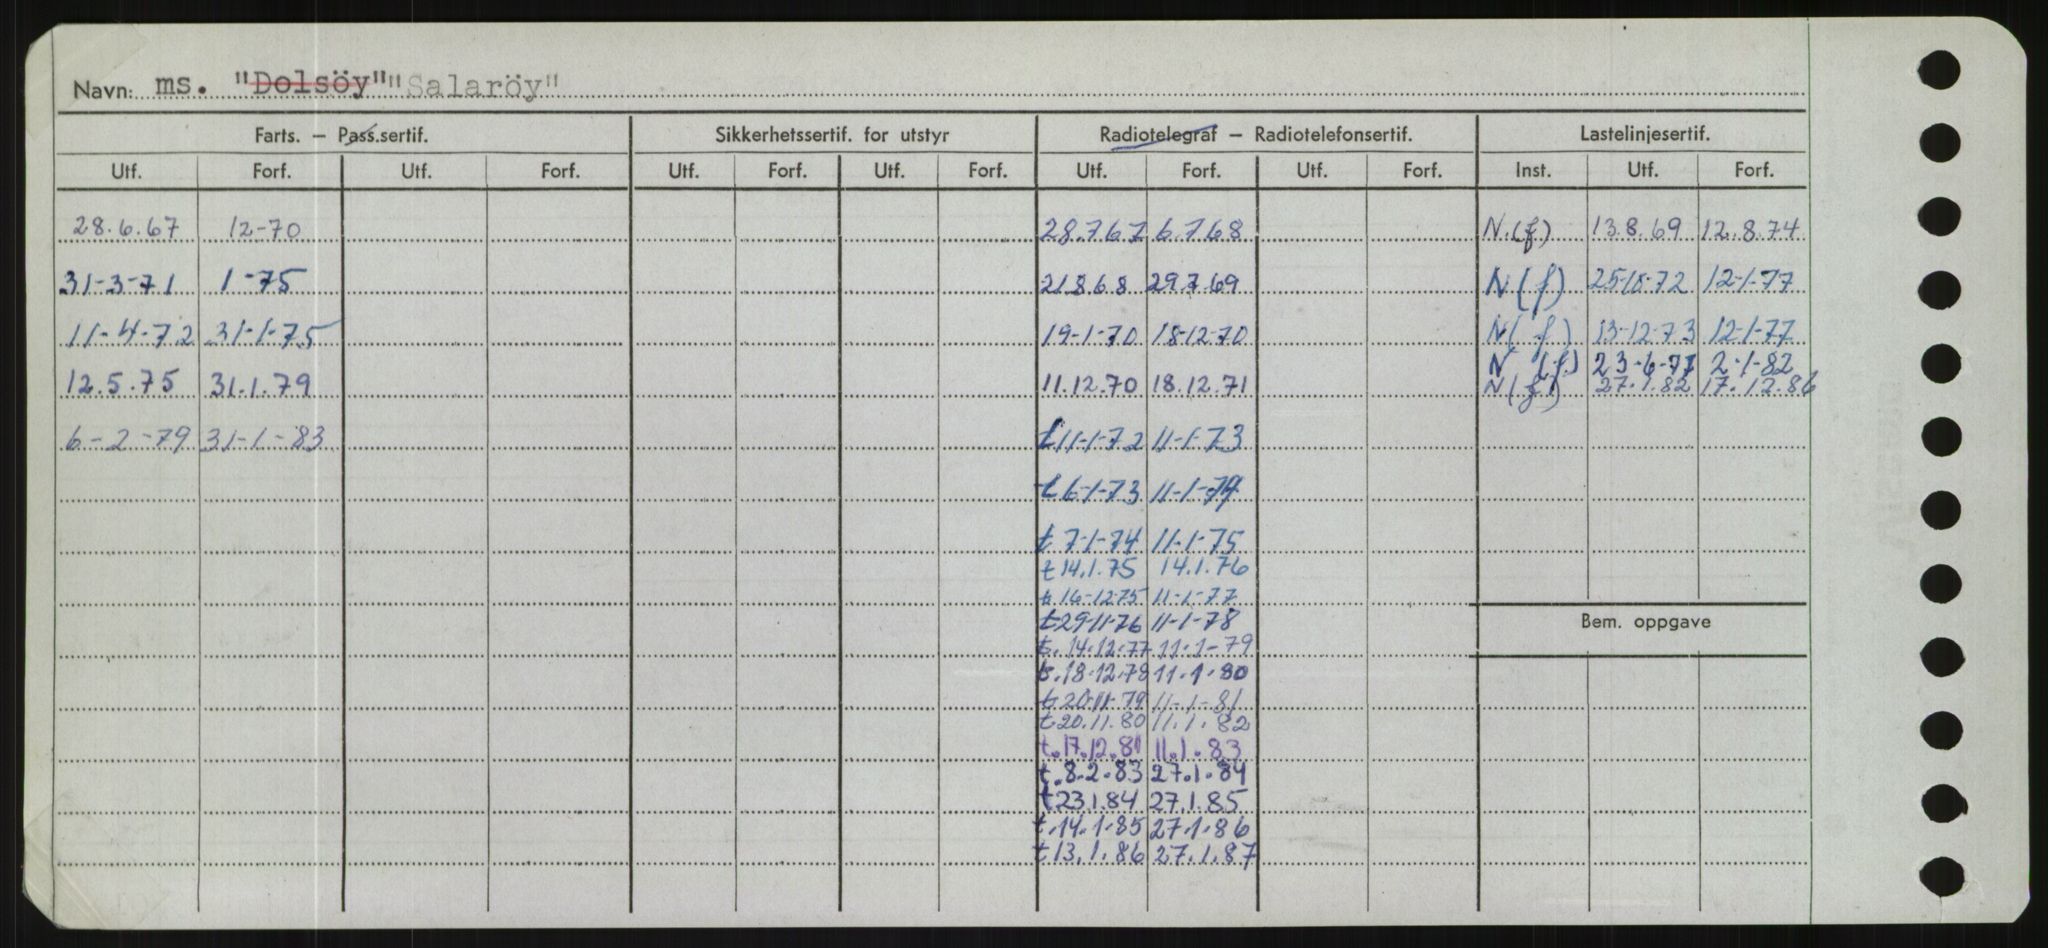 Navn: ms. "Dolsöy" "Salaröy"
Farts. – Pass.sertif. Sikkerhetssertif. for utstyr Radiotelegraf – Radiotelefonsertif. Lastelinjesertif.
Utf. Forf. Utf. Forf. Utf. Forf. Utf. Forf. Utf. Forf. Utf. Forf. Inst. Utf. Forf.
28.6.67 12-70 28.7.67 6.7.68 N.(f) 13.8.69 12.8.74
31-3-71 1-75 21.8.68 29.7.69 N(f) 12-1-77
11-4-72 31-1-75 19-1-70 18-12-70 N(f) 13-12-73 12-1-77
N (f.) 23-6-77 2-1-82
12.5.75 31.1.79 11.12.70 18.12.71 N(f) 27.1.82 17.12.86
6-2-79 31-1-83 t 11-1-72 11-1-73
t 6-1-73 11-1-74
t 7-1-74 11-1-75
t 14.1.75 14.1.76
t. 16-12-75 11-1-77
t 29-11-76 11-1-78
Bem. oppgave
t. 14.12-77 11.1-79
t. 18.12.78 11.1.80
t 20-11-79 11-1-81
t 20.11.80 11.1.82
t. 17.12.81 11.1.83
t. 8.2.83 27.1.84
t 23.1.84 27.1.85
t. 14.1.85 27.1.86
t 13.1.86 27.1.87